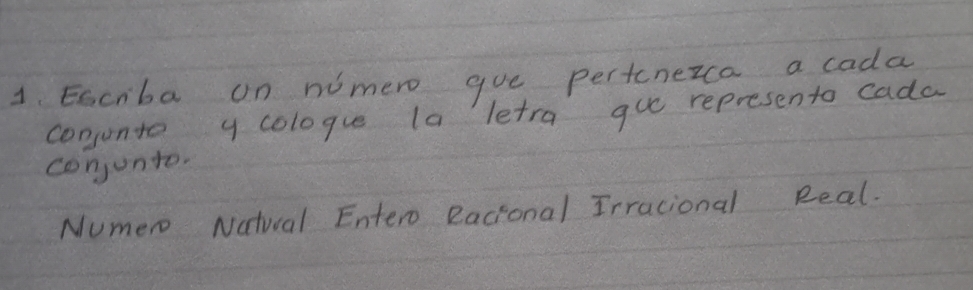 1. Escriba un número que pertenezca a cada
conjunto y coloque la letra que representa cada
conjunto.
Numero Natural Entero Racional Irracional Real.